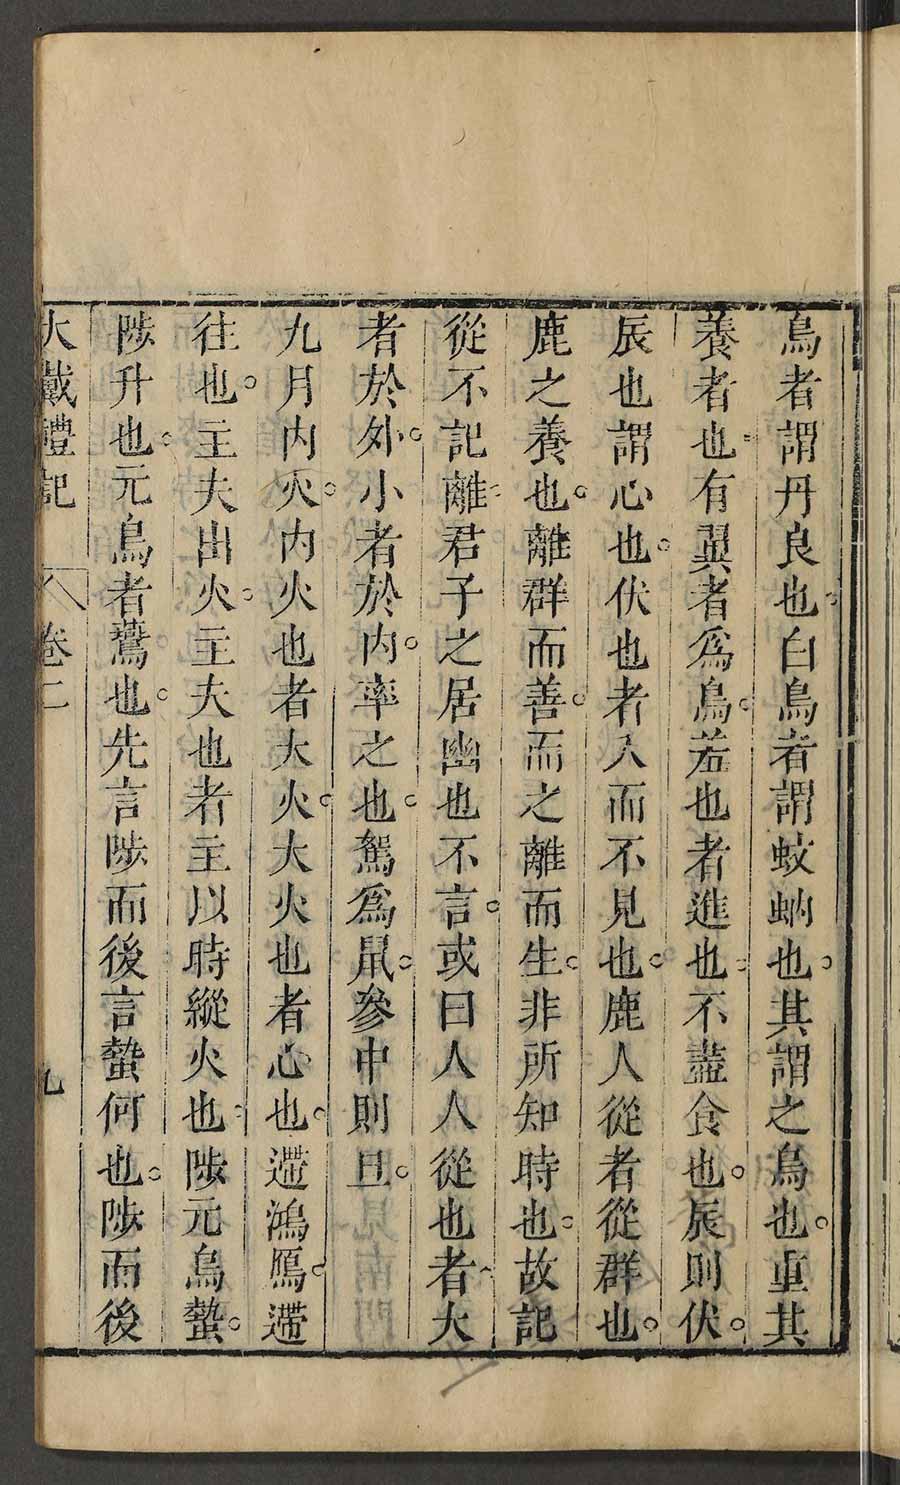 鳥者謂丹良也白鳥者謂蚊蚋也其謂之鳥也重其
養者也有翼者爲鳥羞也者進也不盡食也辰則伏
辰也謂心也伏也者入而不見也鹿人從者從群也
鹿之養也離群而善而之離而生非所知時也故記
從不記離君子之居幽也不言或曰人人從也者大
者於外小者於内率之也鴽爲鼠參中則旦
九月内火内火也者大火大火也者心也遰鴻鴈遰
往也主夫出火主夫也者主以時縱火也陟元鳥蟄
陟升也元鳥者鷰也先言陟而後言蟄何也陟而後
大戴禮記 卷二 九